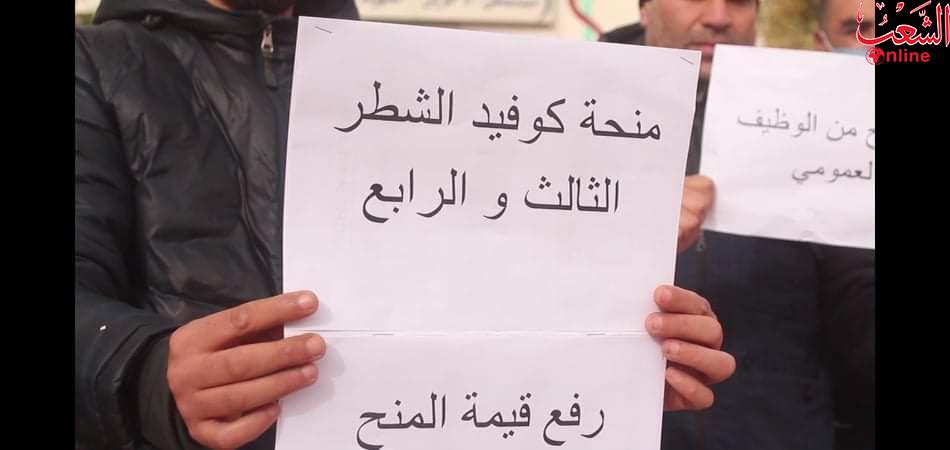 منحة كوفيد الشطر
الثالث و الرابع
رفع قيمة المنح
من الوظيف
العمومي
الشعب
Online